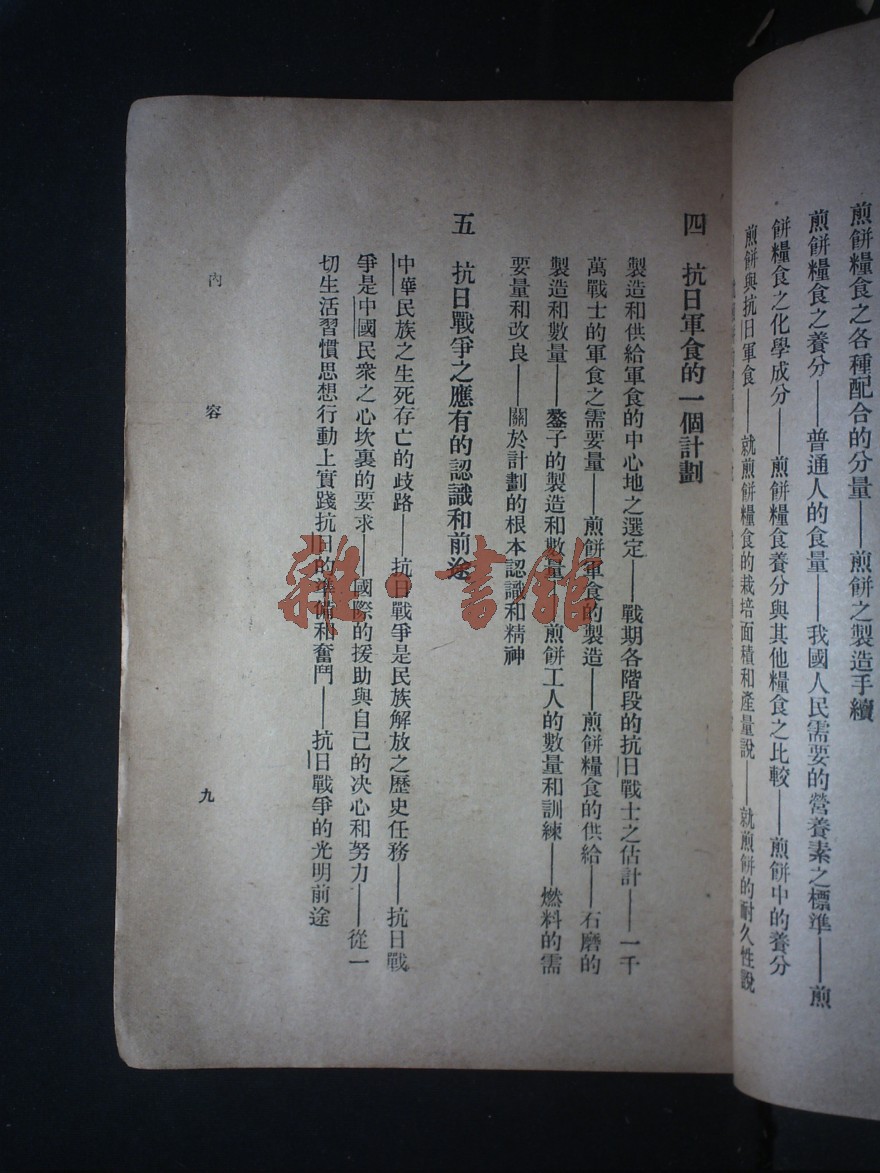 煎餅糧食之各種配合的分量——煎餅之製造手續
煎餅糧食之養分——普通人的食量——我國人民需要的營養素之標準——煎
餅糧食之化學成分——煎餅糧食養分與其他糧食之比較——煎餅中的養分
煎餅與抗日軍食——就煎餅糧食的栽培面積和產量說——就煎餅的耐久性說
四 抗日軍食的一個計劃
製造和供給軍食的中心地之選定——戰期各階段的抗日戰士之估計——一千
萬戰士的軍食之需要量——煎餅軍食的製造——煎餅糧食的供給——石磨的
製造和數量——鏊子的製造和數量——煎餅工人的數量和訓練——燃料的需
要量和改良——關於計劃的根本認識和精神
五 抗日戰爭之應有的認識和前途
中華民族之生死存亡的歧路——抗日戰爭是民族解放之歷史任務——抗日戰
爭是中國民衆之心坎裏的要求——國際的援助與自己的决心和努力——從一
切生活習慣思想行動上實踐抗日的準備和奮鬥——抗日戰爭的光明前途
內容
九
雜·書館